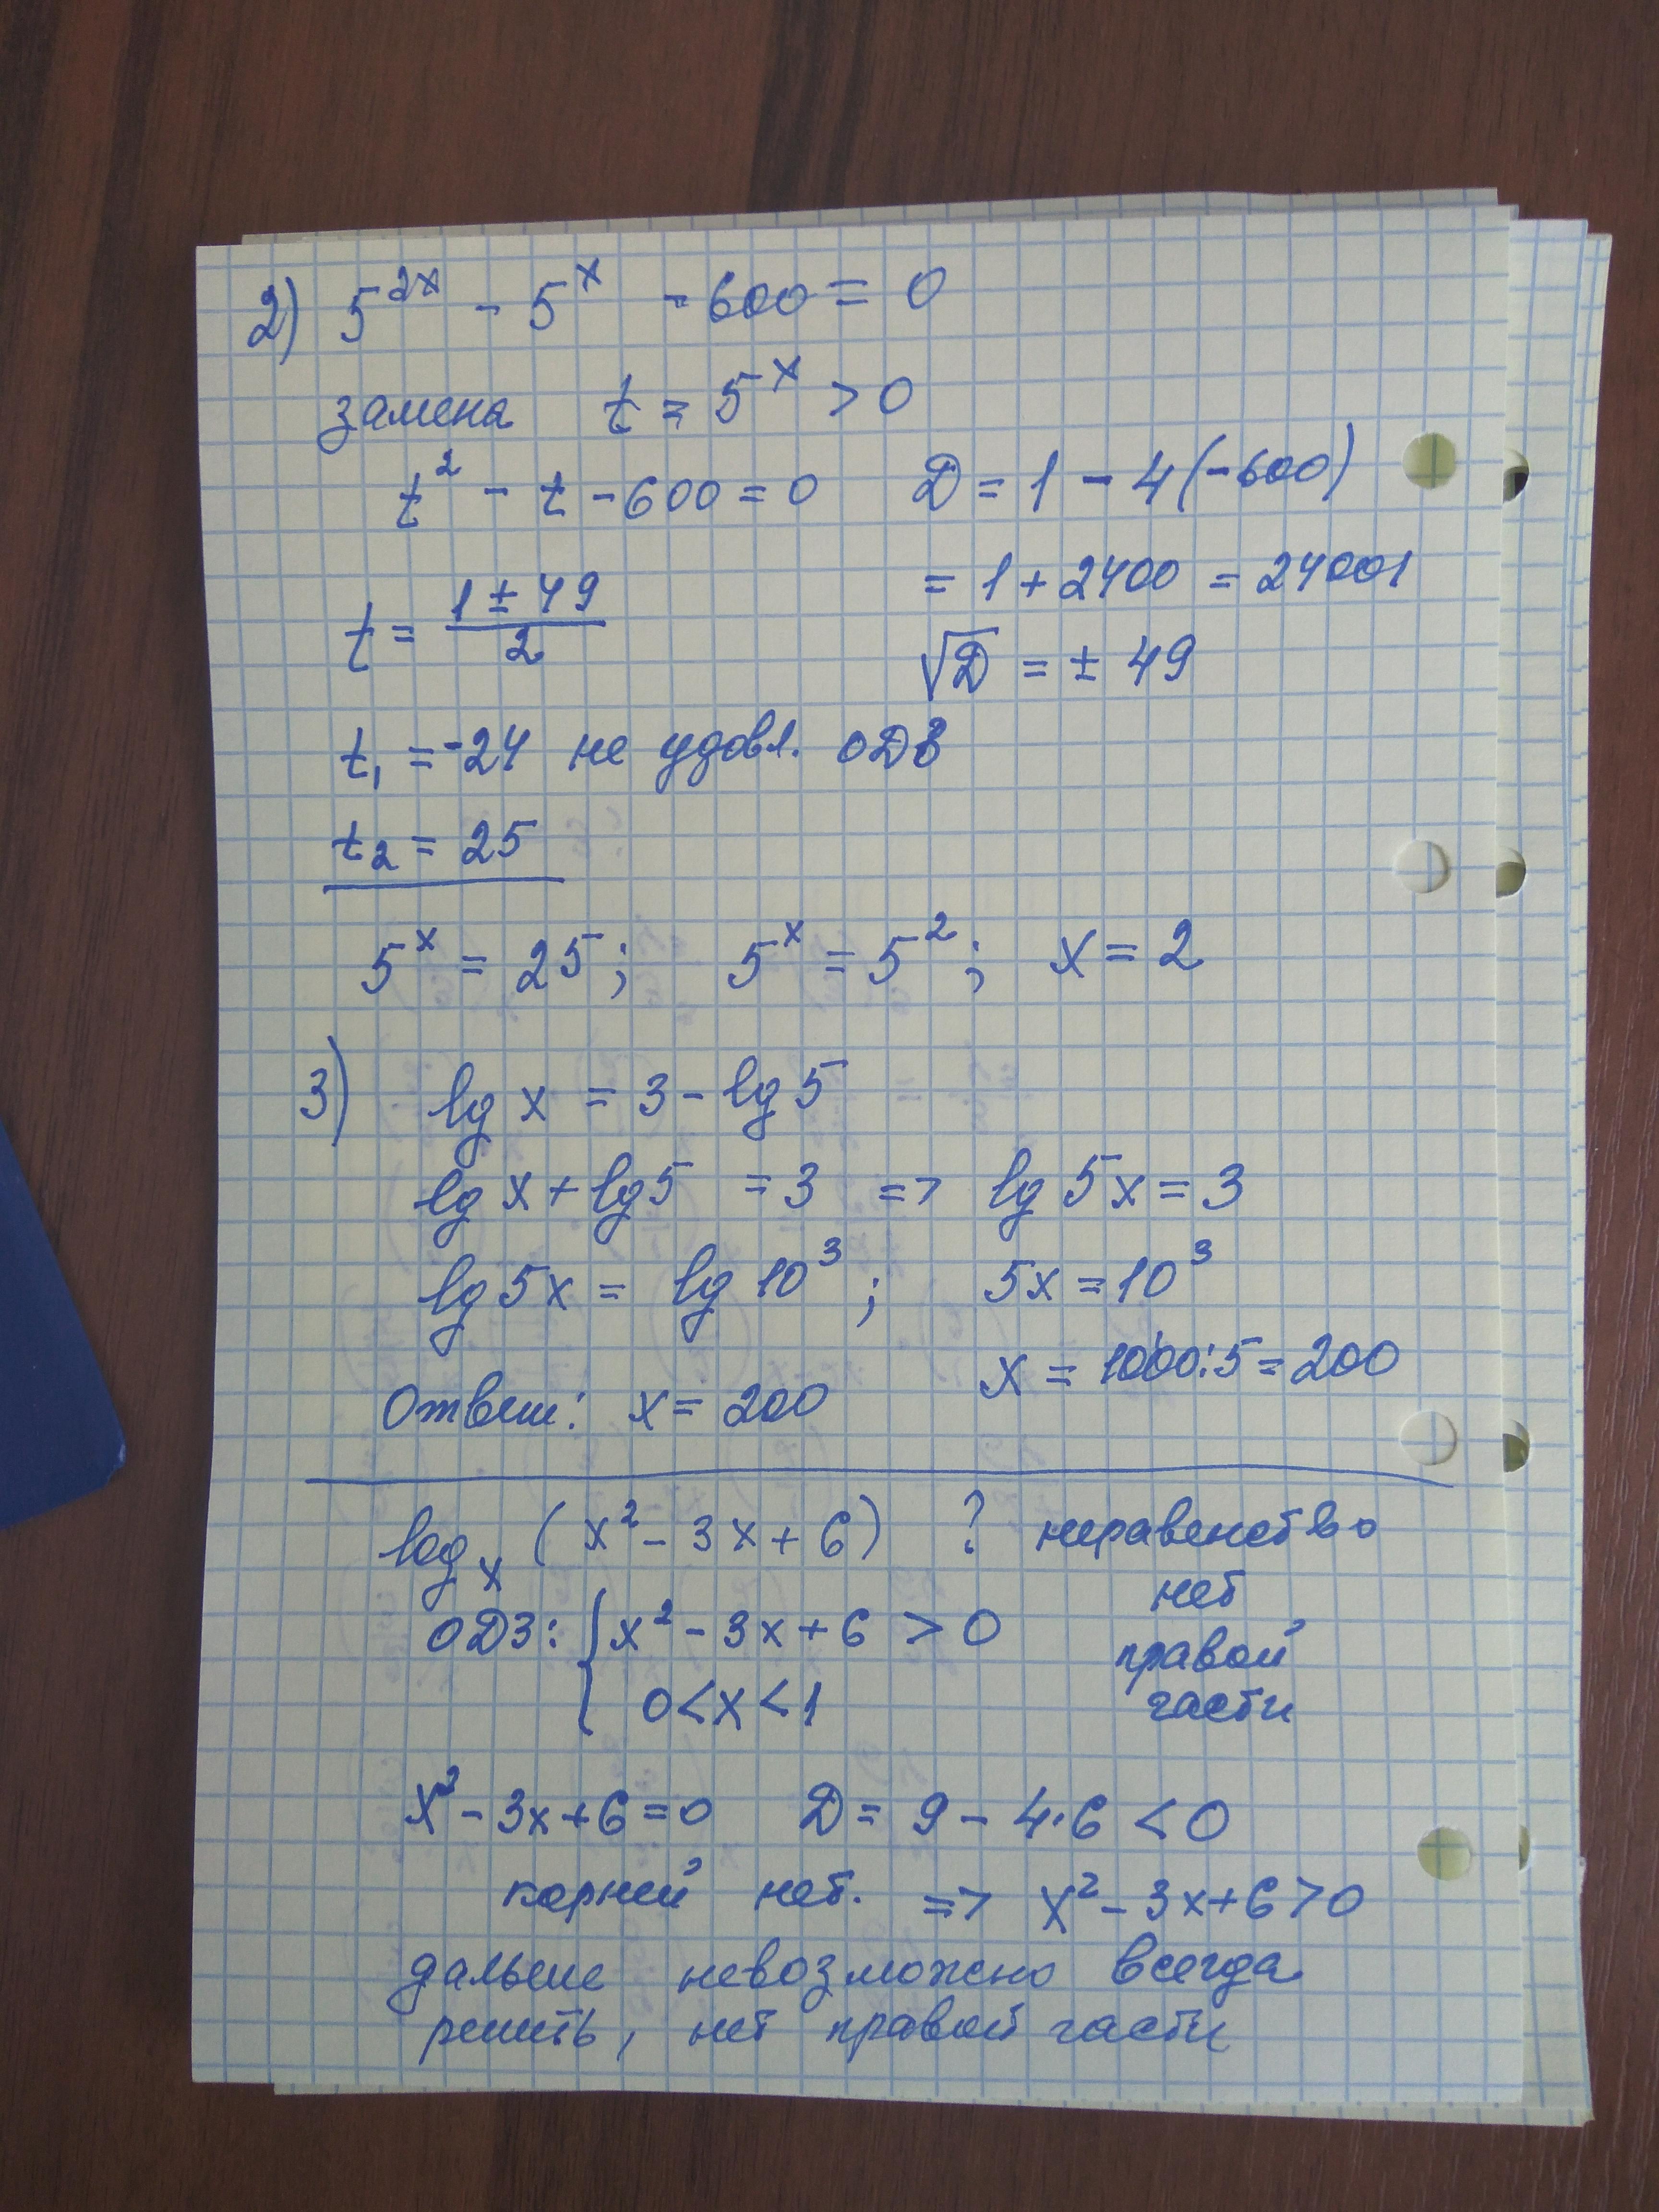 2) 5^{2x} - 5^x - 600 = 0
замена t = 5^x > 0
t² - t - 600 = 0 D = 1 - 4(-600)
= 1 + 2400 = 24001
t = \frac{1 ± 49}{2} √D = ± 49
t₁ = -24 не удовл. ОДЗ
t₂ = 25
5^x = 25; 5^x = 5²; x = 2
3) lg x = 3 - lg 5
lg x + lg 5 = 3 => lg 5x = 3
lg 5x = lg 10³; 5x = 10³
x = 1000:5 = 200
Ответ: x = 200
log_x (x² - 3x + 6) ? неравенство
нет
ОДЗ: { x² - 3x + 6 > 0
правой
0 < x < 1 части
x² - 3x + 6 = 0 D = 9 - 4·6 < 0
корней нет. => x² - 3x + 6 > 0
дальше невозможно всегда
решить, нет правой части